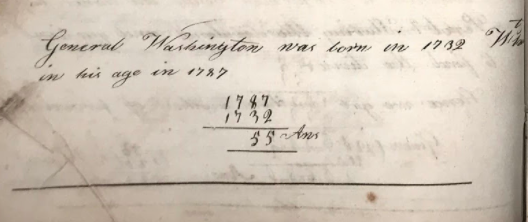 General Washington was born in 1732
in his age in 1787
1787
1732
55 Ans